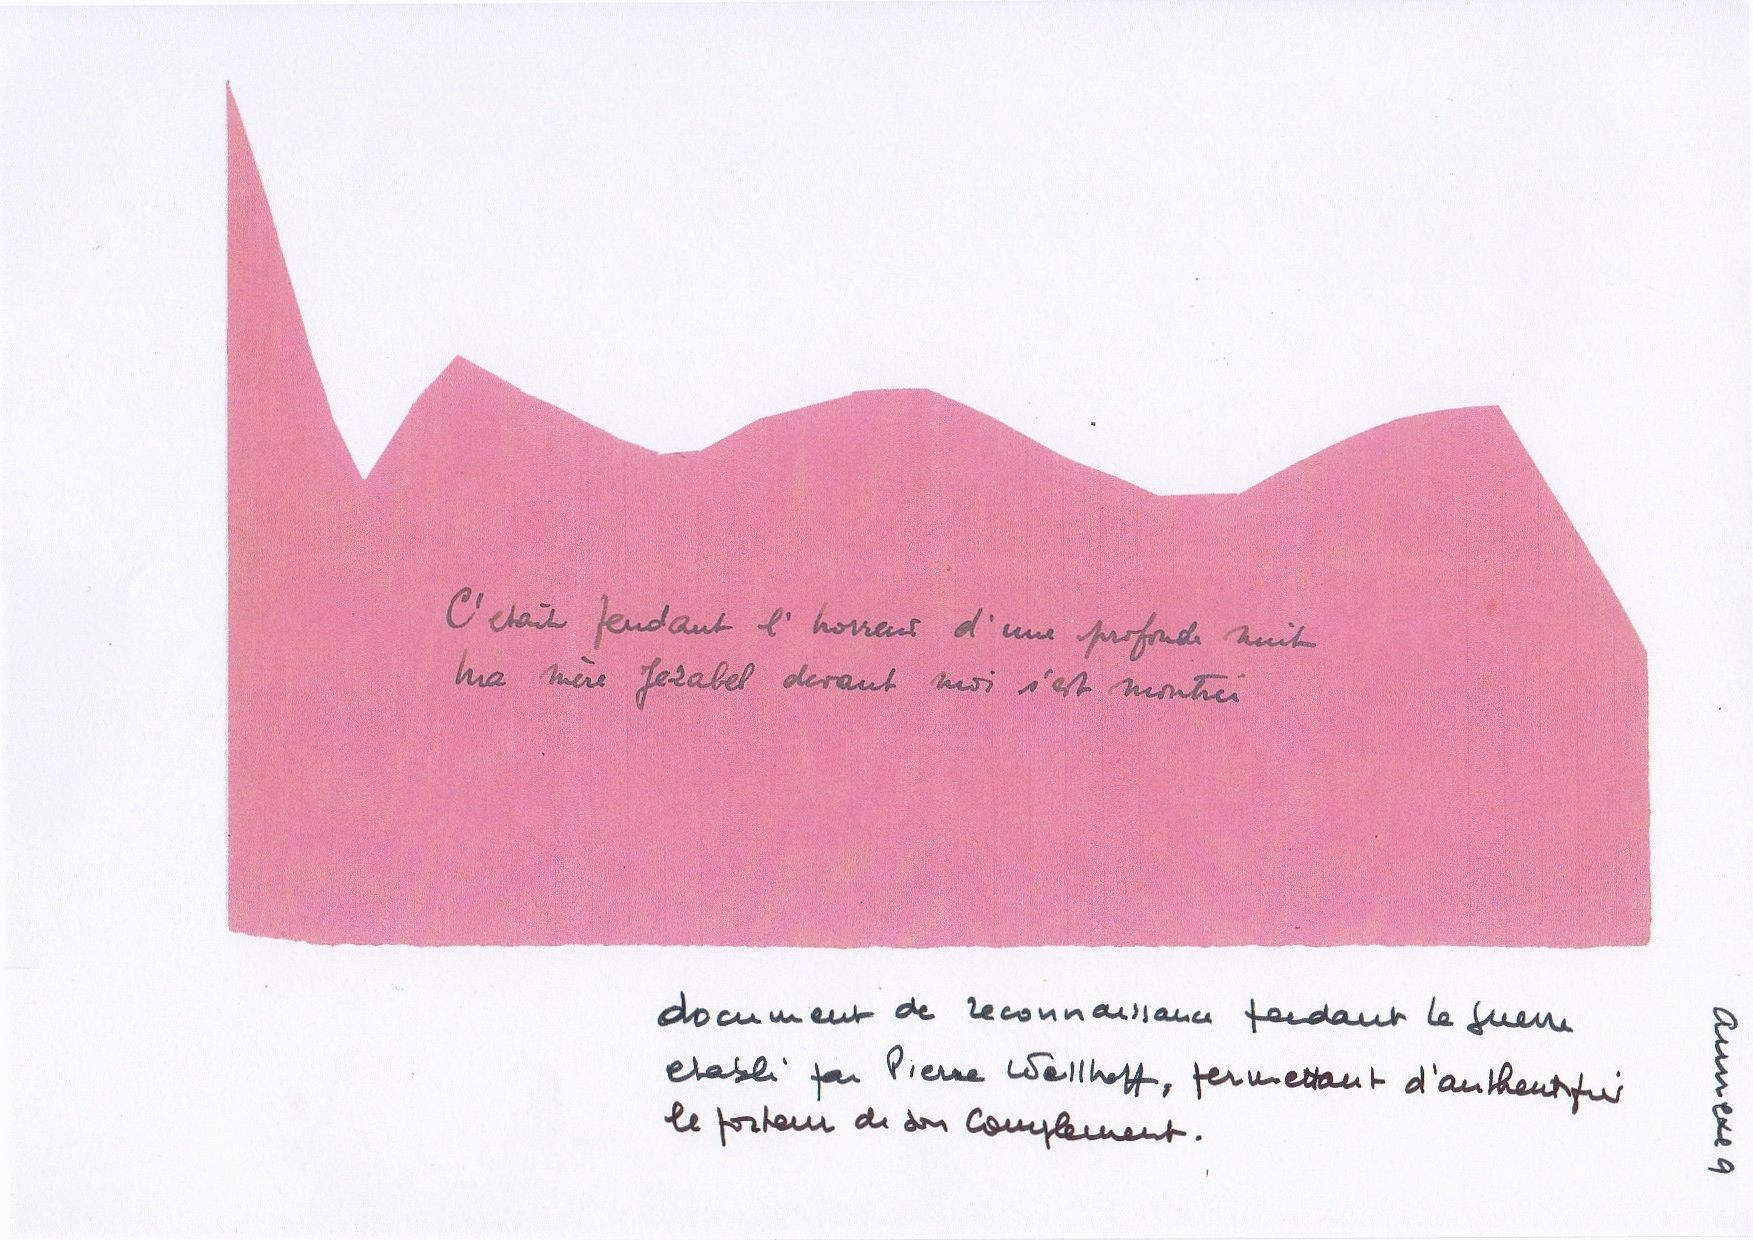 C'etait pendant l'horreur d'une profonde nuit
Ma mère Jezabel devant moi s'est montrée
document de reconnaissance pendant la guerre
etabli par Pierre Wallhoff, permettant d'authentifier
le porteur de son complement.
Annexe 9